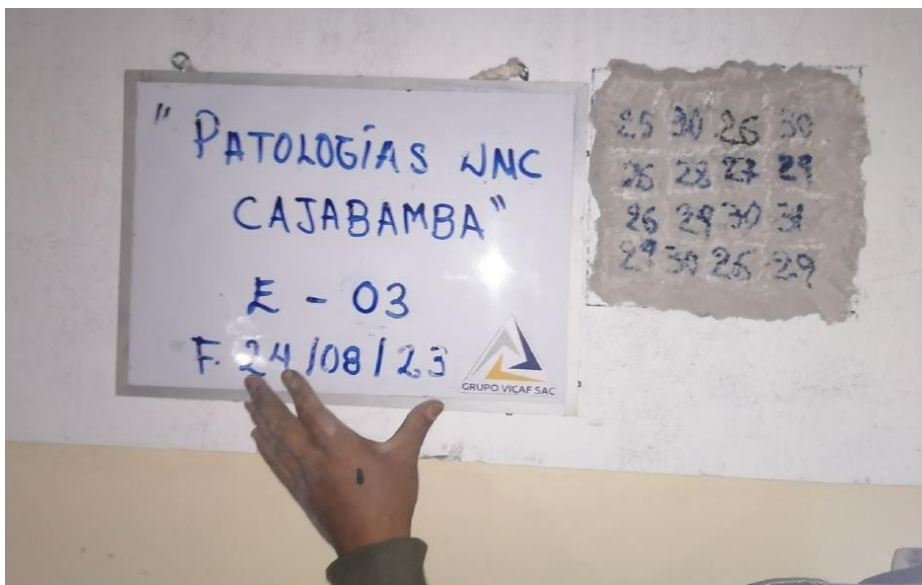 "PATOLOGÍAS UNC
CAJABAMBA"
E - 03
F. 24/08/23
GRUPO VICAF SAC
25 30 26 30
26 28 27 29
26 29 30 31
29 30 26 29